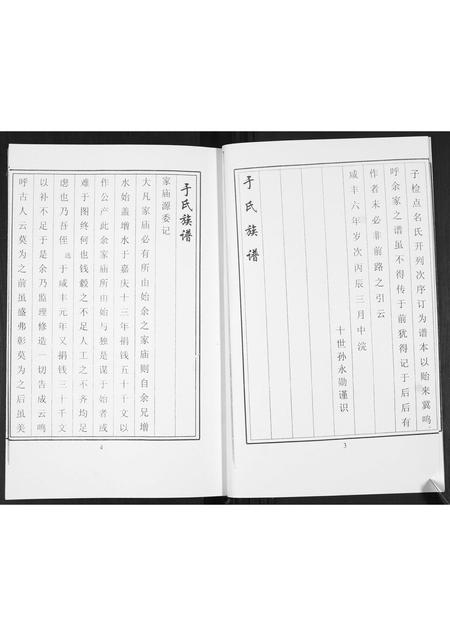 子检点名氏开列次序订为谱本以贻来冀呜
呼余家之谱虽不得传于前犹得记于后后有
作者未必非前路之引云
咸丰六年岁次丙辰三月中浣
十世孙永勋谨识
于氏族谱
3
于氏族谱
家庙源委记
大凡家庙必有所由始余之家庙则自余兄增
水始盖增水于嘉庆十三年捐钱五十千文以
作公产此余家庙所由始与独是谋于始者或
难于图终何也钱毅之不足人工之不齐均足
虑也乃吾侄选于咸丰元年又捐钱三十千文
以补不足于是余乃监理修造一切告成云呜
呼古人云莫为之前虽盛弗彰莫为之后虽美
4